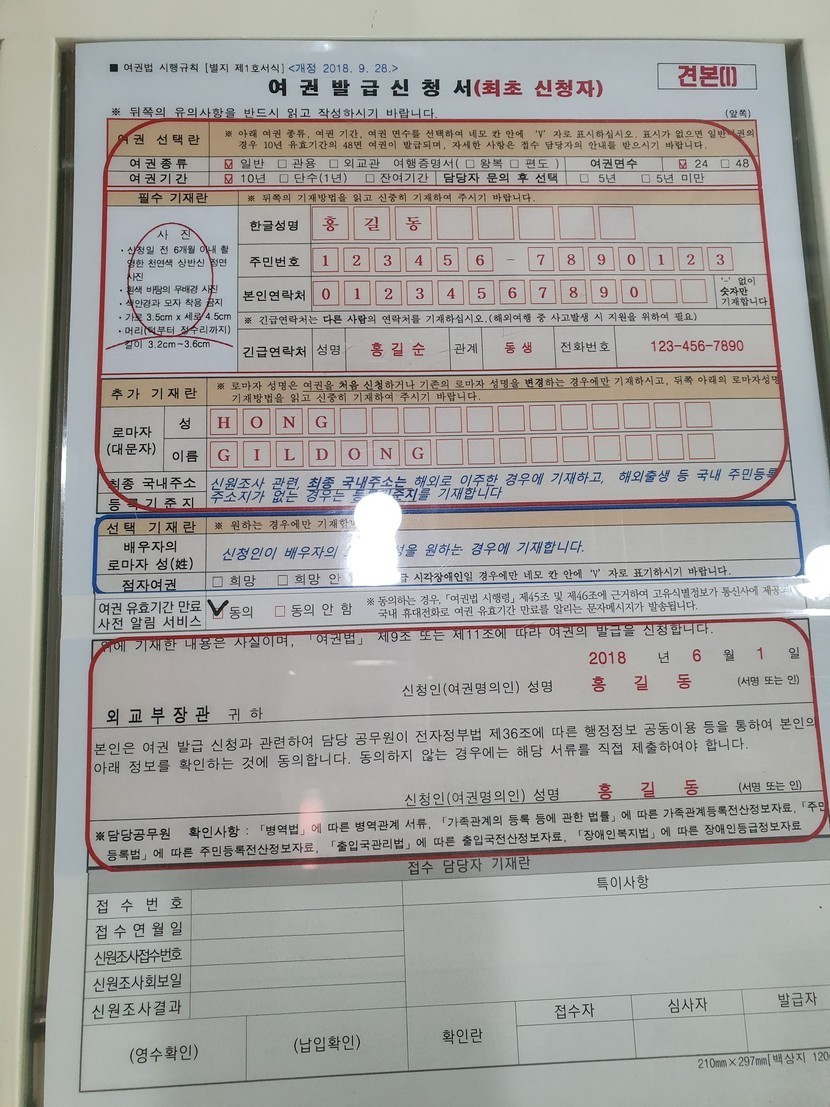 ■ 여권법 시행규칙 [별지 제1호서식] <개정 2018. 9. 28.>
견본(I)
여 권 발 급 신 청 서(최초 신청자)
※ 뒤쪽의 유의사항을 반드시 읽고 작성하시기 바랍니다. (앞쪽)
여권 선택란 ※ 아래 여권 종류, 여권 기간, 여권 면수를 선택하여 네모 칸 안에 'V' 자로 표시하십시오. 표시가 없으면 일반여권의
경우 10년 유효기간의 48면 여권이 발급되며, 자세한 사항은 접수 담당자의 안내를 받으시기 바랍니다.
여권종류 ☑ 일반 □ 관용 □ 외교관 여행증명서( □ 왕복 □ 편도 ) 여권면수 ☑ 24 □ 48
여권기간 ☑ 10년 □ 단수(1년) □ 잔여기간 담당자 문의 후 선택 □ 5년 □ 5년 미만
필수 기재란 ※ 뒤쪽의 기재방법을 읽고 신중히 기재하여 주시기 바랍니다.
사 진
· 신청일 전 6개월 이내 촬
영한 천연색 상반신 정면
사진
· 흰색 바탕의 무배경 사진
· 색안경과 모자 착용 금지
· 가로 3.5cm x 세로 4.5cm
· 머리(턱부터 정수리까지)
길이 3.2cm~3.6cm
한글성명 홍 길 동
주민번호 1 2 3 4 5 6 - 7 8 9 0 1 2 3
본인연락처 0 1 2 3 4 5 6 7 8 9 0 '-' 없이
숫자만
기재합니다
※ 긴급연락처는 다른 사람의 연락처를 기재하십시오.(해외여행 중 사고발생 시 지원을 위하여 필요)
긴급연락처 성명 홍길순 관계 동생 전화번호 123-456-7890
추가 기재란 ※ 로마자 성명은 여권을 처음 신청하거나 기존의 로마자 성명을 변경하는 경우에만 기재하시고, 뒤쪽 아래의 로마자성명
기재방법을 읽고 신중히 기재하여 주시기 바랍니다.
로마자
(대문자)
성 H O N G
이름 G I L D O N G
최종 국내주소 신원조사 관련, 최종 국내주소는 해외로 이주한 경우에 기재하고, 해외출생 등 국내 주민등록
등록기준지 주소지가 없는 경우는 등록기준지를 기재합니다
선택 기재란 ※ 원하는 경우에만 기재합
배우자의
로마자 성(姓) 신청인이 배우자의 성을 원하는 경우에 기재합니다.
점자여권 □ 희망 □ 희망 안 시각장애인일 경우에만 네모 칸 안에 'V' 자로 표기하시기 바랍니다.
여권 유효기간 만료
사전 알림 서비스
☑ 동의 □ 동의 안 함 ※ 동의하는 경우, 「여권법 시행령」 제45조 및 제46조에 근거하여 고유식별정보가 통신사에 제공
국내 휴대전화로 여권 유효기간 만료를 알리는 문자메시지가 발송됩니다.
위에 기재한 내용은 사실이며, 「여권법」 제9조 또는 제11조에 따라 여권의 발급을 신청합니다.
2018 년 6 월 1 일
신청인(여권명의인) 성명 홍 길 동 (서명 또는 인)
외교부장관 귀하
본인은 여권 발급 신청과 관련하여 담당 공무원이 전자정부법 제36조에 따른 행정정보 공동이용 등을 통하여 본인의
아래 정보를 확인하는 것에 동의합니다. 동의하지 않는 경우에는 해당 서류를 직접 제출하여야 합니다.
신청인(여권명의인) 성명 홍 길 동 (서명 또는 인)
※담당공무원 확인사항 : 「병역법」에 따른 병역관계 서류, 「가족관계의 등록 등에 관한 법률」에 따른 가족관계등록전산정보자료, 「주민
등록법」에 따른 주민등록전산정보자료, 「출입국관리법」에 따른 출입국전산정보자료, 「장애인복지법」에 따른 장애인등급정보자료
접수 담당자 기재란
접 수 번 호 특이사항
접수연월일
신원조사접수번호
신원조사회보일
신원조사결과
(영수확인) (납입확인) 확인란 접수자 심사자 발급자
210mm×297mm[백상지 120